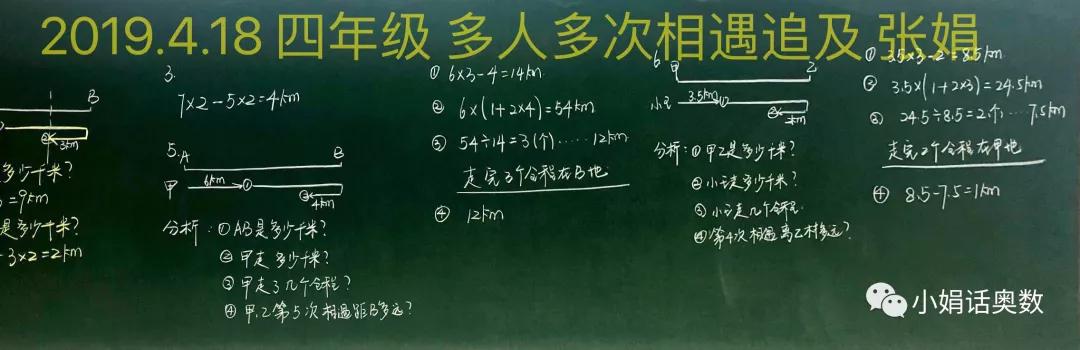 2019.4.18 四年级 多人多次相遇追及 张娟
B
② 3km
多少千米?
=9km
是多少千米?
-3×2=2km
3.
7×2-5×2=4km
5. A B
甲 6km ① ② 4km
分析: ① AB是多少千米?
② 甲走多少千米?
③ 甲走了几个全程?
④ 甲、乙第5次相遇距B多远?
① 6×3-4=14km
② 6×(1+2×4)=54km
③ 54÷14=3(个)……12km
走完3个全程在B地
④ 12km
6. 甲 乙
小王 3.5km ① ② 2km
分析: ① 甲乙是多少千米?
② 小王走多少千米?
③ 小王走几个全程?
④ 第4次相遇离乙村多远?
① 3.5×3-2=8.5km
② 3.5×(1+2×3)=24.5km
③ 24.5÷8.5=2个…7.5km
走完2个全程在甲地
④ 8.5-7.5=1km
小娟话奥数